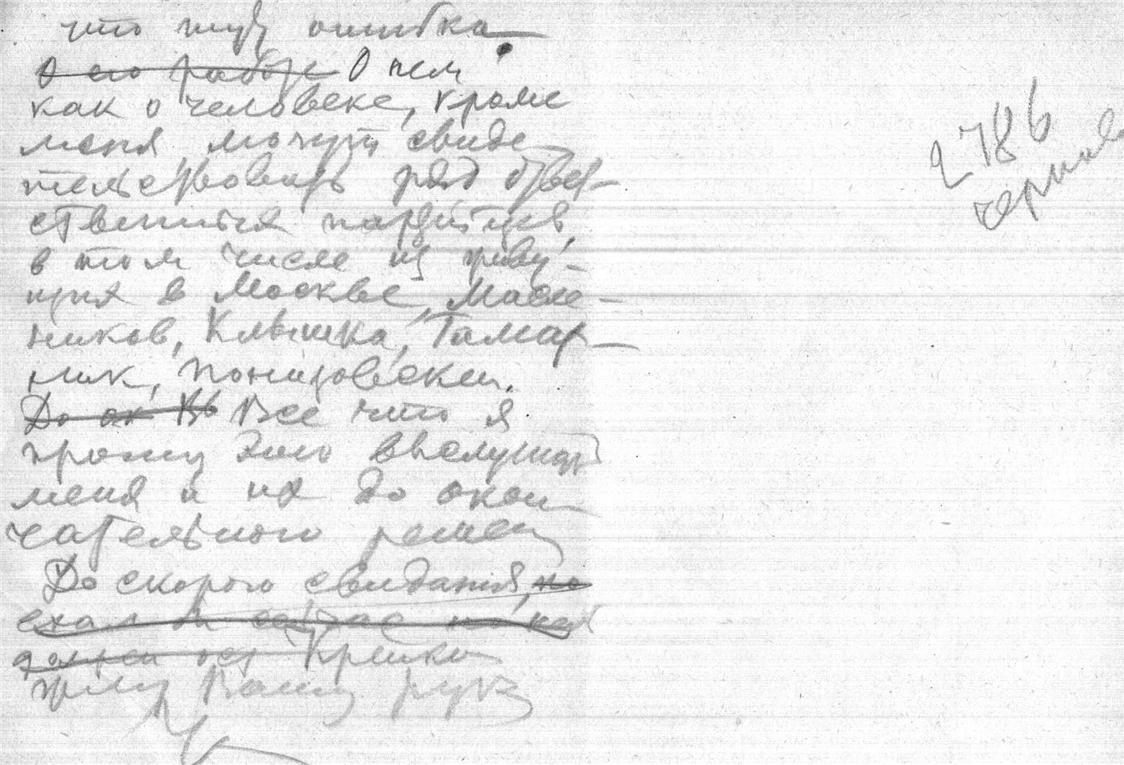 что тут ошибка
О его работе О нем
как о человеке, кроме
меня могут свиде-
тельствовать ряд ответ-
ственных партийцев,
в том числе из живу-
щих в Москве, Масле-
ников, Клышка, Тамар-
ник, Понизовский.
До ок Въ Все что я
прошу это выслушать
меня и их до окон-
чательного решен
До скорого свидания, по
ехал я сейчас
должен ост Крепко
жму Вашу руку
2786